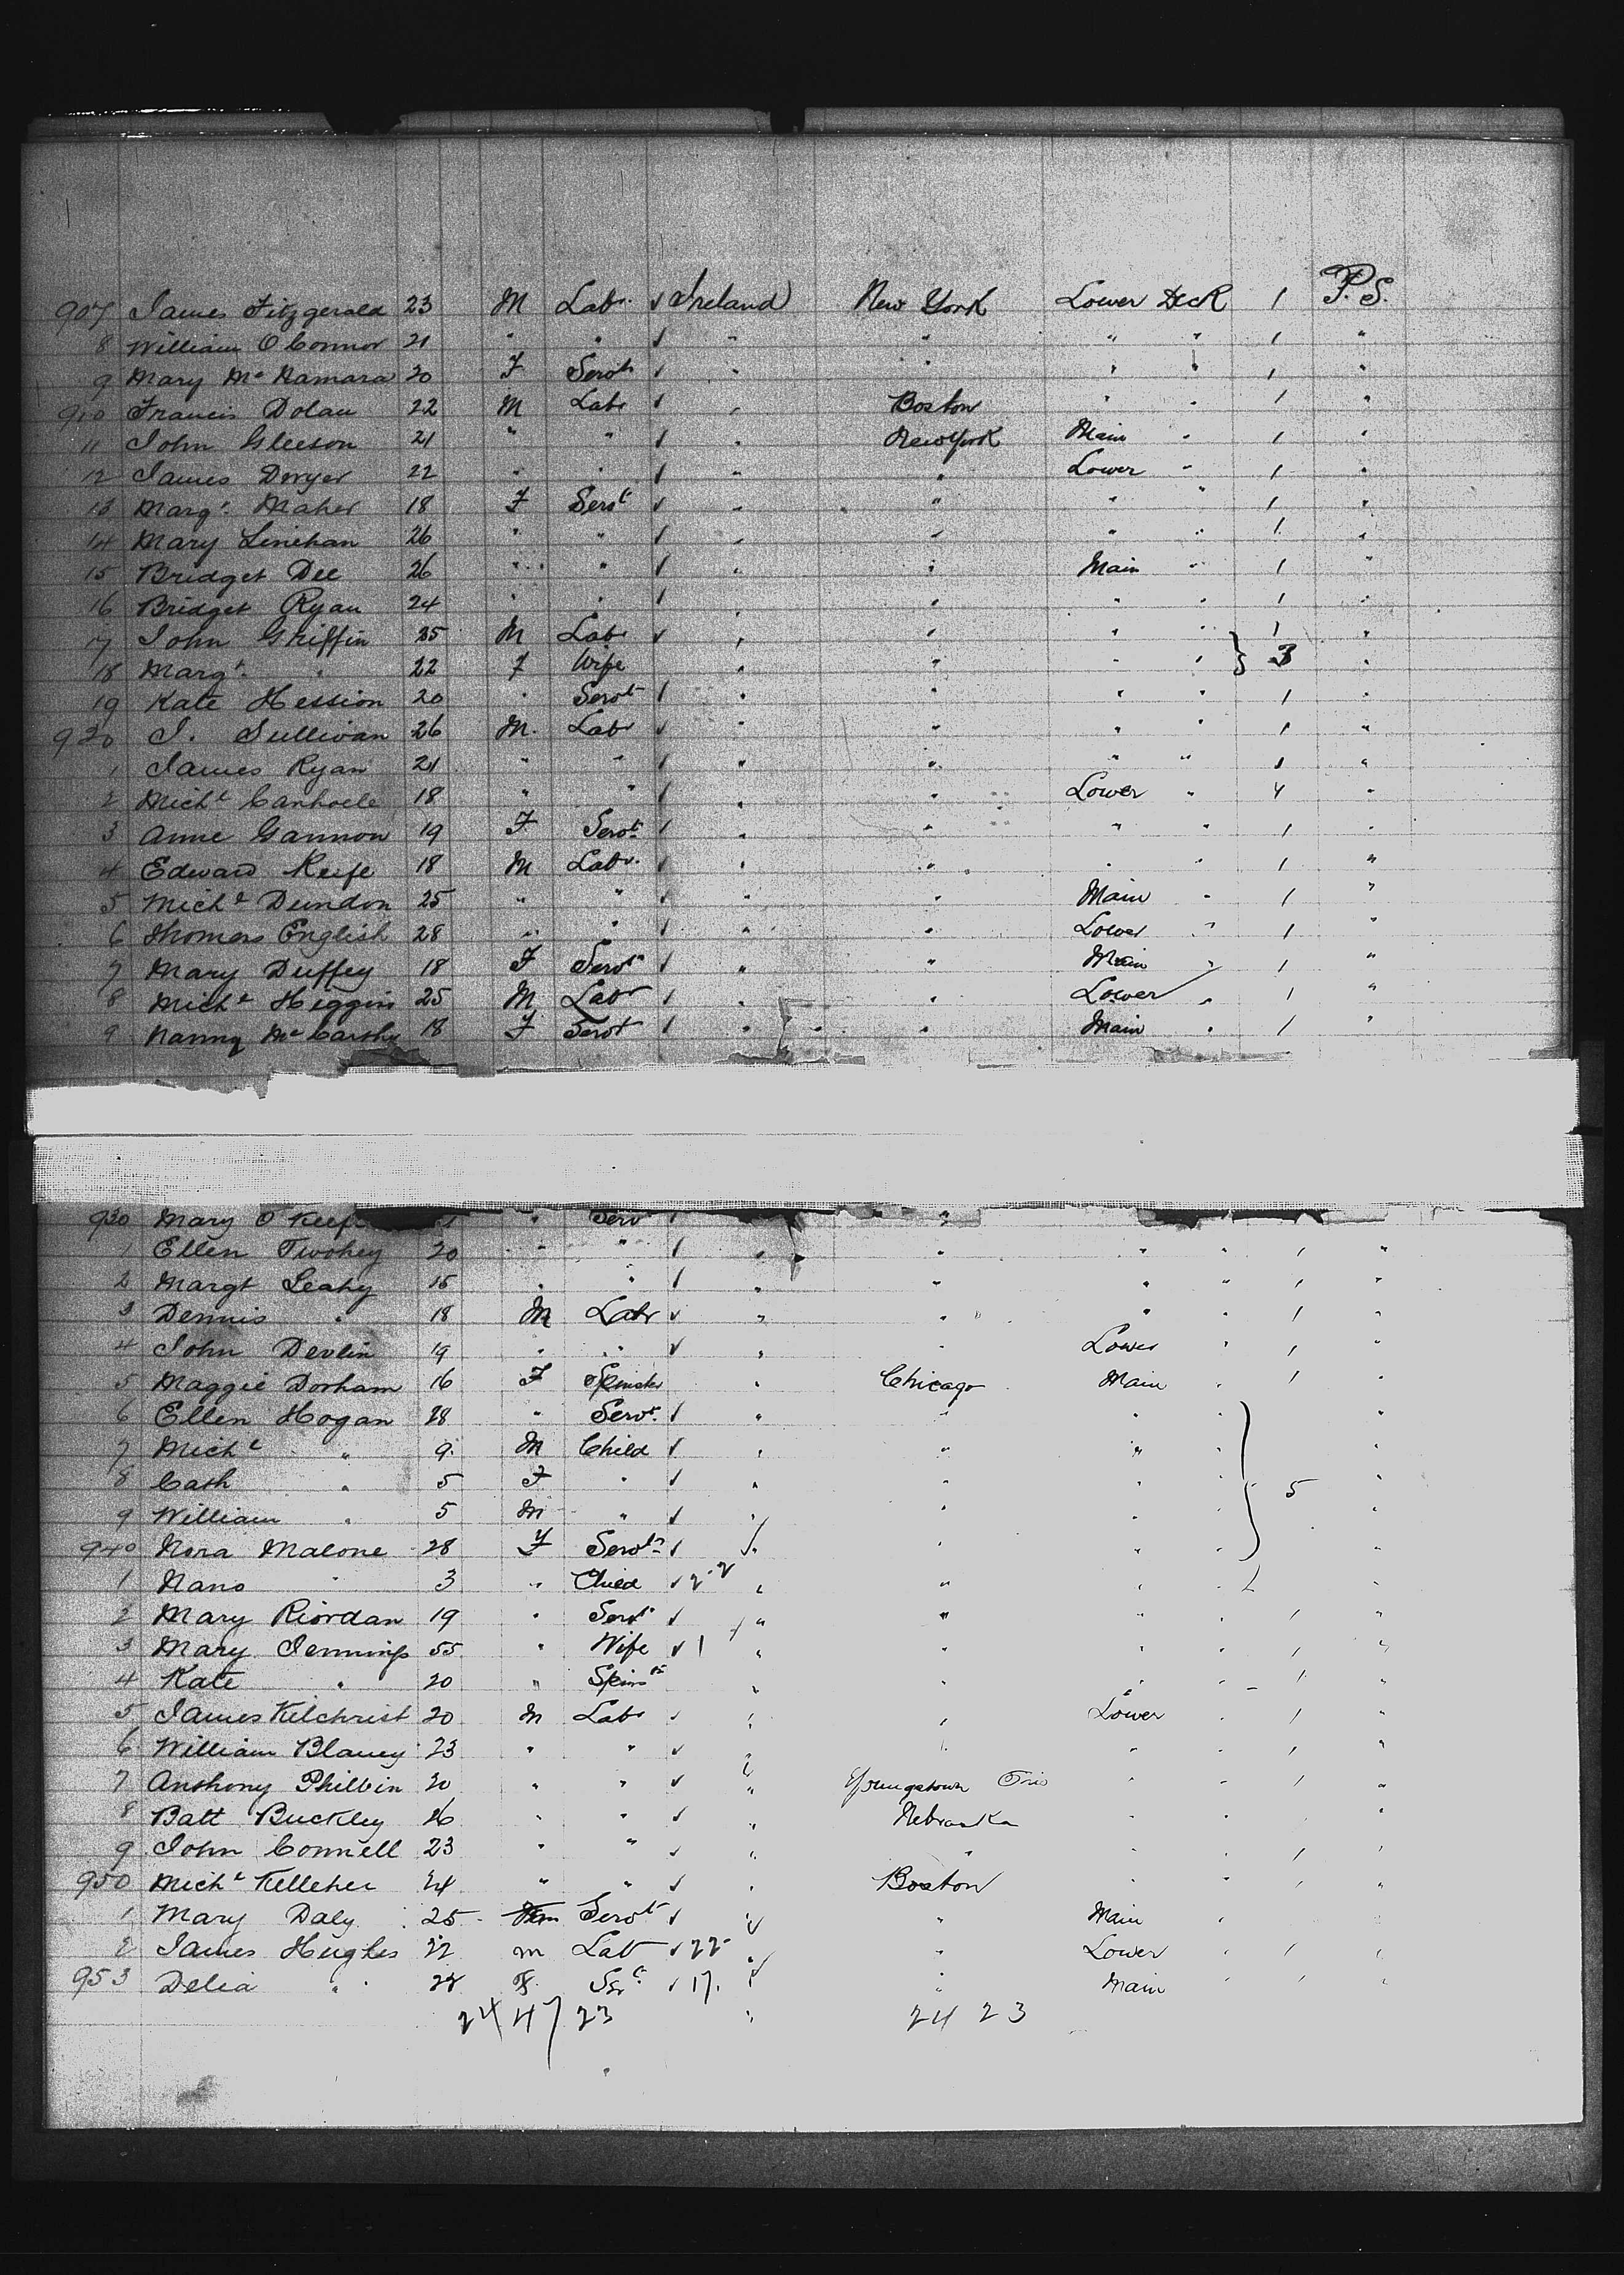 907 James Fitzgerald 23 M Labr. ✓ Ireland New York Lower Deck 1 P.S.
8 William O'Connor 21 " " ✓ " " " " 1 "
9 Mary Mc Namara 20 F Servt ✓ " " " " 1 "
910 Francis Dolan 22 M Labr ✓ " Boston " " 1 "
11 John Gleeson 21 " " ✓ " New York Main " 1 "
12 James Dwyer 22 " " ✓ " " Lower " 1 "
13 Margt. Maher 18 F Servt ✓ " " " " 1 "
14 Mary Linehan 26 " " ✓ " " " " 1 "
15 Bridget Dee 26 " " ✓ " " Main " 1 "
16 Bridget Ryan 24 " " ✓ " " " " 1 "
17 John Griffin 25 M Labr ✓ " " " " 1 "
18 Margt. " 22 F Wife " " " " } 3 "
19 Kate Hession 20 " Servt ✓ " " " " 1 "
920 J. Sullivan 26 M. Labr ✓ " " " " 1 "
1 James Ryan 21 " " ✓ " " " " 1 "
2 Michl 18 " " ✓ " " Lower " "
3 Anne Gannon 19 F Servt ✓ " " " " 1 "
4 Edward Keefe 18 M Labr. ✓ " " " " 1 "
5 Michl Dundon 25 " " ✓ " " Main " 1 "
6 Thomas English 28 " " ✓ " " Lower " 1 "
7 Mary Duffey 18 F Servt ✓ " " Main " 1 "
8 Michl Higgins 25 M Labr ✓ " " Lower " 1 "
9 Nanny Mc Carthy 18 F Servt ✓ " " Main " 1 "
930 Mary O'Keef " Servt ✓ "
1 Ellen Twohey 20 " " ✓ " " " " 1 "
2 Margt Leahy 15 " " ✓ " " " " 1 "
3 Dennis " 18 M Labr ✓ " " " " 1 "
4 John Devlin 19 " " ✓ " " Lower " 1 "
5 Maggie Dorham 16 F Spinster " Chicago Main " 1 "
6 Ellen Hogan 28 " Servt. ✓ " " " " "
7 Michl " 9 M Child ✓ " " " " "
8 Cath " 5 F " ✓ " " " " } 5 "
9 William " 5 M " ✓ " " " " "
940 Nora Malone 28 F Servt ✓ " " " " "
1 Nano " 3 " Child ✓ 2-2 " " " " "
2 Mary Riordan 19 " Servt ✓ " " " " 1 "
3 Mary Jennings 55 " Wife ✓ 1 " " " " 1 "
4 Kate " 20 " Spinst " " " " 1 "
5 James Kilchrist 20 M Labr ✓ " " Lower " 1 "
6 William Blaney 23 " " ✓ " " " " 1 "
7 Anthony Philbin 20 " " ✓ " Youngstown " " 1 "
8 Batt Buckley 26 " " ✓ " Nebraska " " 1 "
9 John Connell 23 " " ✓ " " " " 1 "
950 Michl Kelleher 24 " " ✓ " Boston " " 1 "
1 Mary Daly 25 Servt ✓ " " Main " "
2 James Hughes 22 m Lab ✓ 22 " " Lower " 1 "
953 Delia " 28 F. ✓ 17. " " Main " 1 "
24 47 23 24 23